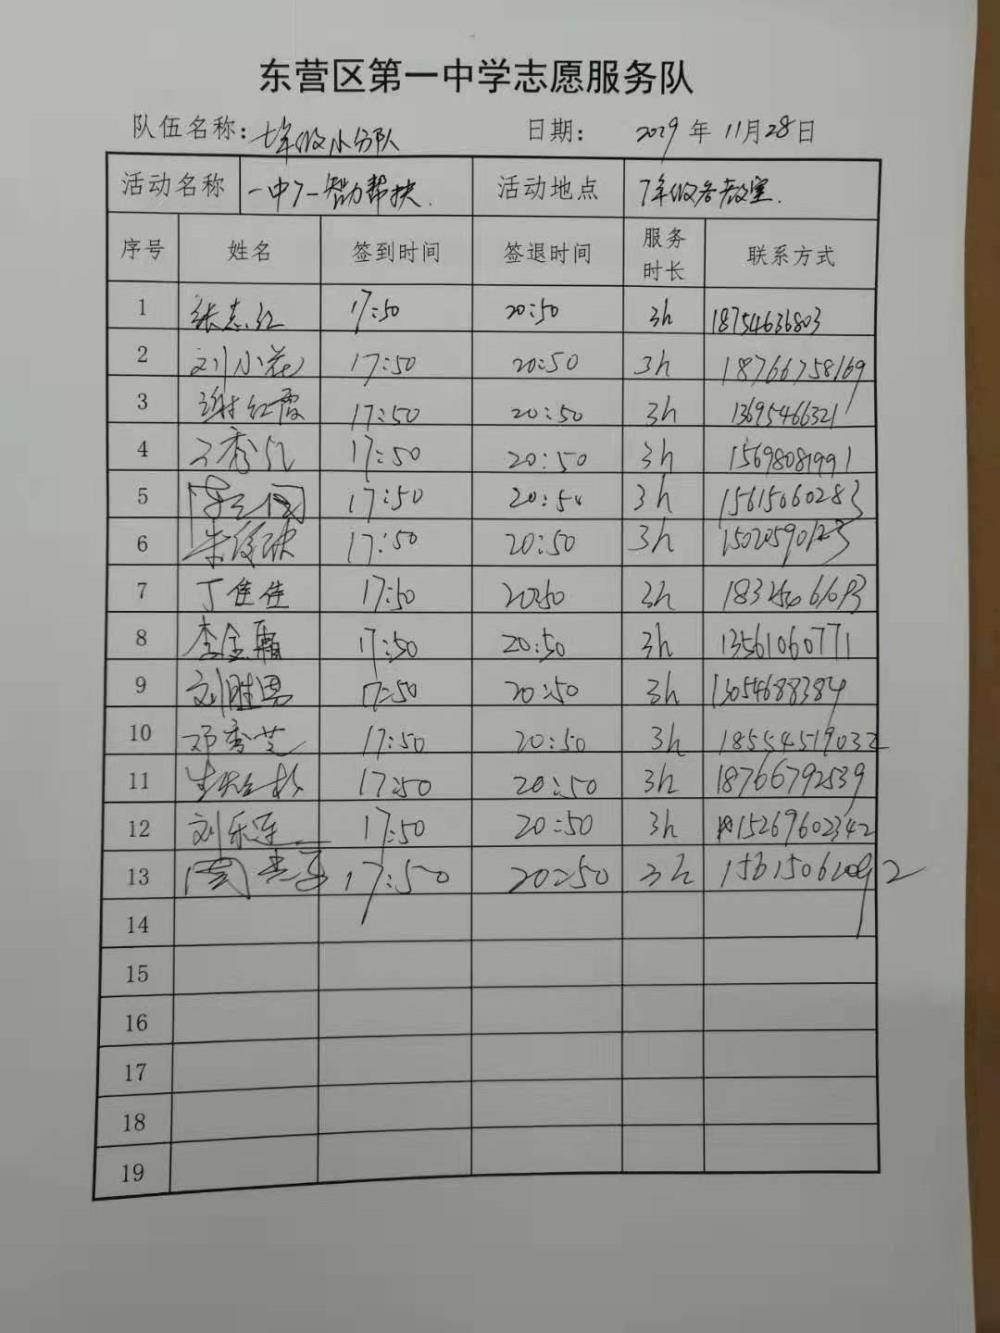 东营区第一中学志愿服务队
队伍名称: 七年级小分队 日期: 2019 年 11月28日
活动名称 一中7一智力帮扶. 活动地点 7年级各教室.
序号 姓名 签到时间 签退时间 服务时长 联系方式
1 张志红 17:50 20:50 3h 18754636803
2 刘小花 17:50 20:50 3h 18766758169
3 谢红霞 17:50 20:50 3h 13695466321
4 17:50 20:50 3h 15698081991
5 17:50 20:50 3h 15615060283
6 17:50 20:50 3h
7 丁佳佳 17:50 20:50 3h
8 李金霜 17:50 20:50 3h 13561060771
9 刘胜男 17:50 20:50 3h 13054688384
10 邓秀芝 17:50 20:50 3h 18554519032
11 17:50 20:50 3h 18766792539
12 刘乐莲 17:50 20:50 3h 15269602342
13 17:50 20:50 3h
14
15
16
17
18
19